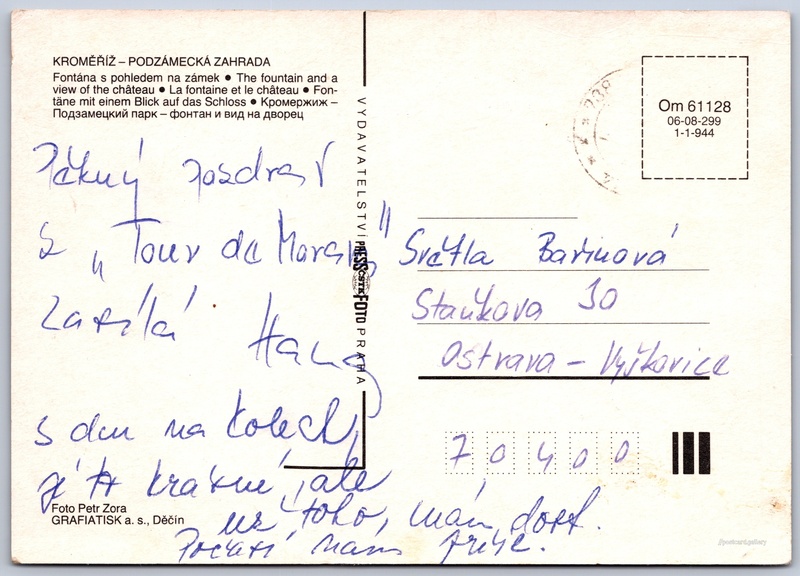 KROMĚŘÍŽ – PODZÁMECKÁ ZAHRADA
Fontána s pohledem na zámek ● The fountain and a
view of the château ● La fontaine et le château ● Fon-
täne mit einem Blick auf das Schloss ● Кромержиж –
Подзамецкий парк – фонтан и вид на дворец
Pěkný pozdrav
z „Tour de Morava"
zasílá
Hana
5 dnů na kolech
je to krásné, ale
už toho mám dost.
Počasí nám přije.
Foto Petr Zora
GRAFIATISK a. s., Děčín
VYDAVATELSTVÍ PRESSFOTO PRAHA
ČSTK
Om 61128
06-08-299
1-1-944
Světla Bařinová
Staňkova 30
Ostrava – Vyškovice
70400